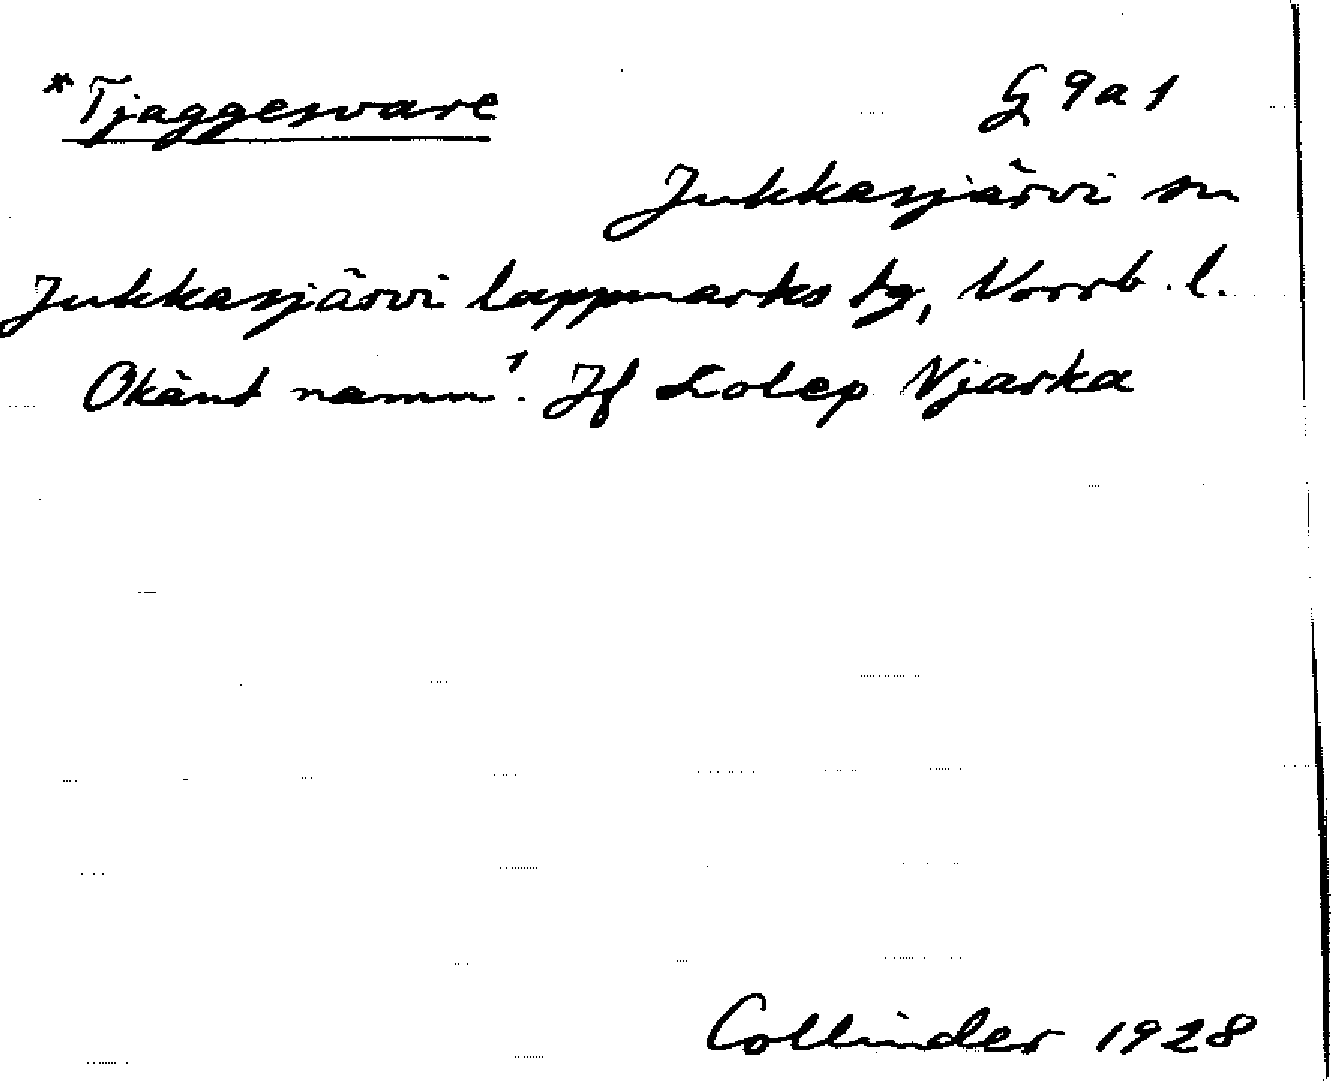 *Tjaggesvare
G 9a1
Jukkasjärvi sn
Jukkasjärvi lappmarks tg, Norrb. l.
Okänt namn. Jf Luolep Njarka
Collinder 1928